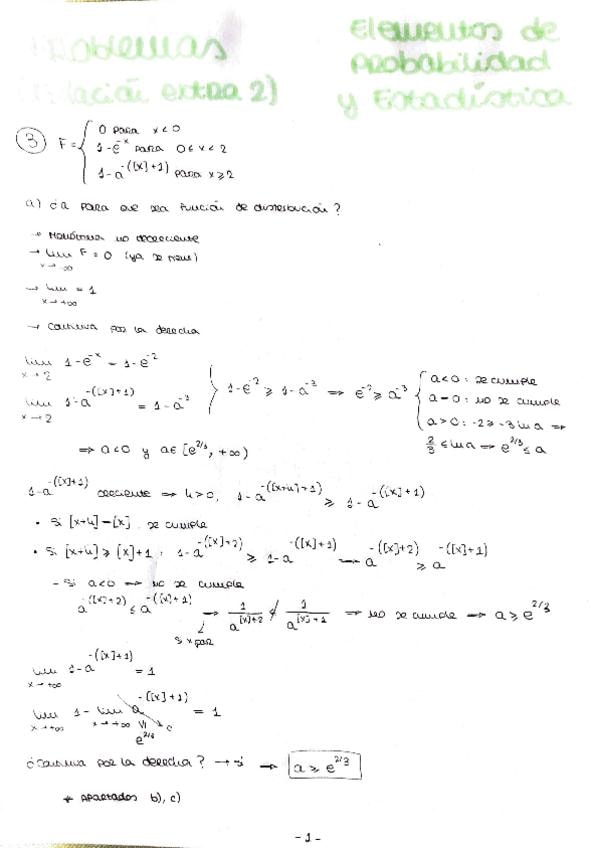 Problemas
(Relación extra 2)
Elementos de
Probabilidad
y Estadística
③ F = { 0 para x < 0
1-e^-x para 0 ≤ x < 2
1-a^-([x]+1) para x ≥ 2
a) ¿a para que sea función de distribución?
→ Monótona no decreciente
→ lim x→-∞ F = 0 (ya se tiene)
→ lim x→+∞ = 1
→ Continua por la derecha
lim x→2 1-e^-x = 1-e^-2
lim x→2 1-a^-([x]+1) = 1-a^-3
} 1-e^-2 ≥ 1-a^-3 ⇒ e^-2 ≥ a^-3 { a<0: se cumple
a=0: no se cumple
a>0: -2 ≥ -3 ln a ⇒
2/3 ≤ ln a ⇒ e^2/3 ≤ a
⇒ a<0 y a∈[e^2/3, +∞)
1-a^-([x]+1) creciente ⇒ h>0, 1-a^-([x+h]+1) ≥ 1-a^-([x]+1)
• Si [x+h]=[x] se cumple
• Si [x+h] ≥ [x]+1 : 1-a^-([x]+2) ≥ 1-a^-([x]+1) → a^-([x]+2) ≥ a^-([x]+1)
- Si a<0 ⇒ no se cumple
a^-([x]+2) ≤ a^-([x]+1) → 1/a^[x]+2 ≮ 1/a^[x]+1 ⇒ no se cumple ⇒ a ≥ e^2/3
si x par
lim x→+∞ 1-a^-([x]+1) = 1
lim x→+∞ 1 - lim x→+∞ a^-([x]+1) = 1
VI
e^2/3
¿Continua por la derecha? → sí ⇒ a ≥ e^2/3
* Apartados b), c)
- 1 -